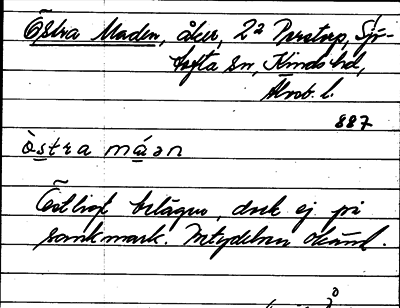 Östra Maden, åker, 2² Perstorp, Sju-
tofta sn, Kinds hd,
Älvsb. l.
887
òstra máən
Östligt belägen, dock ej på
sankmark. Betydelsen okänd.